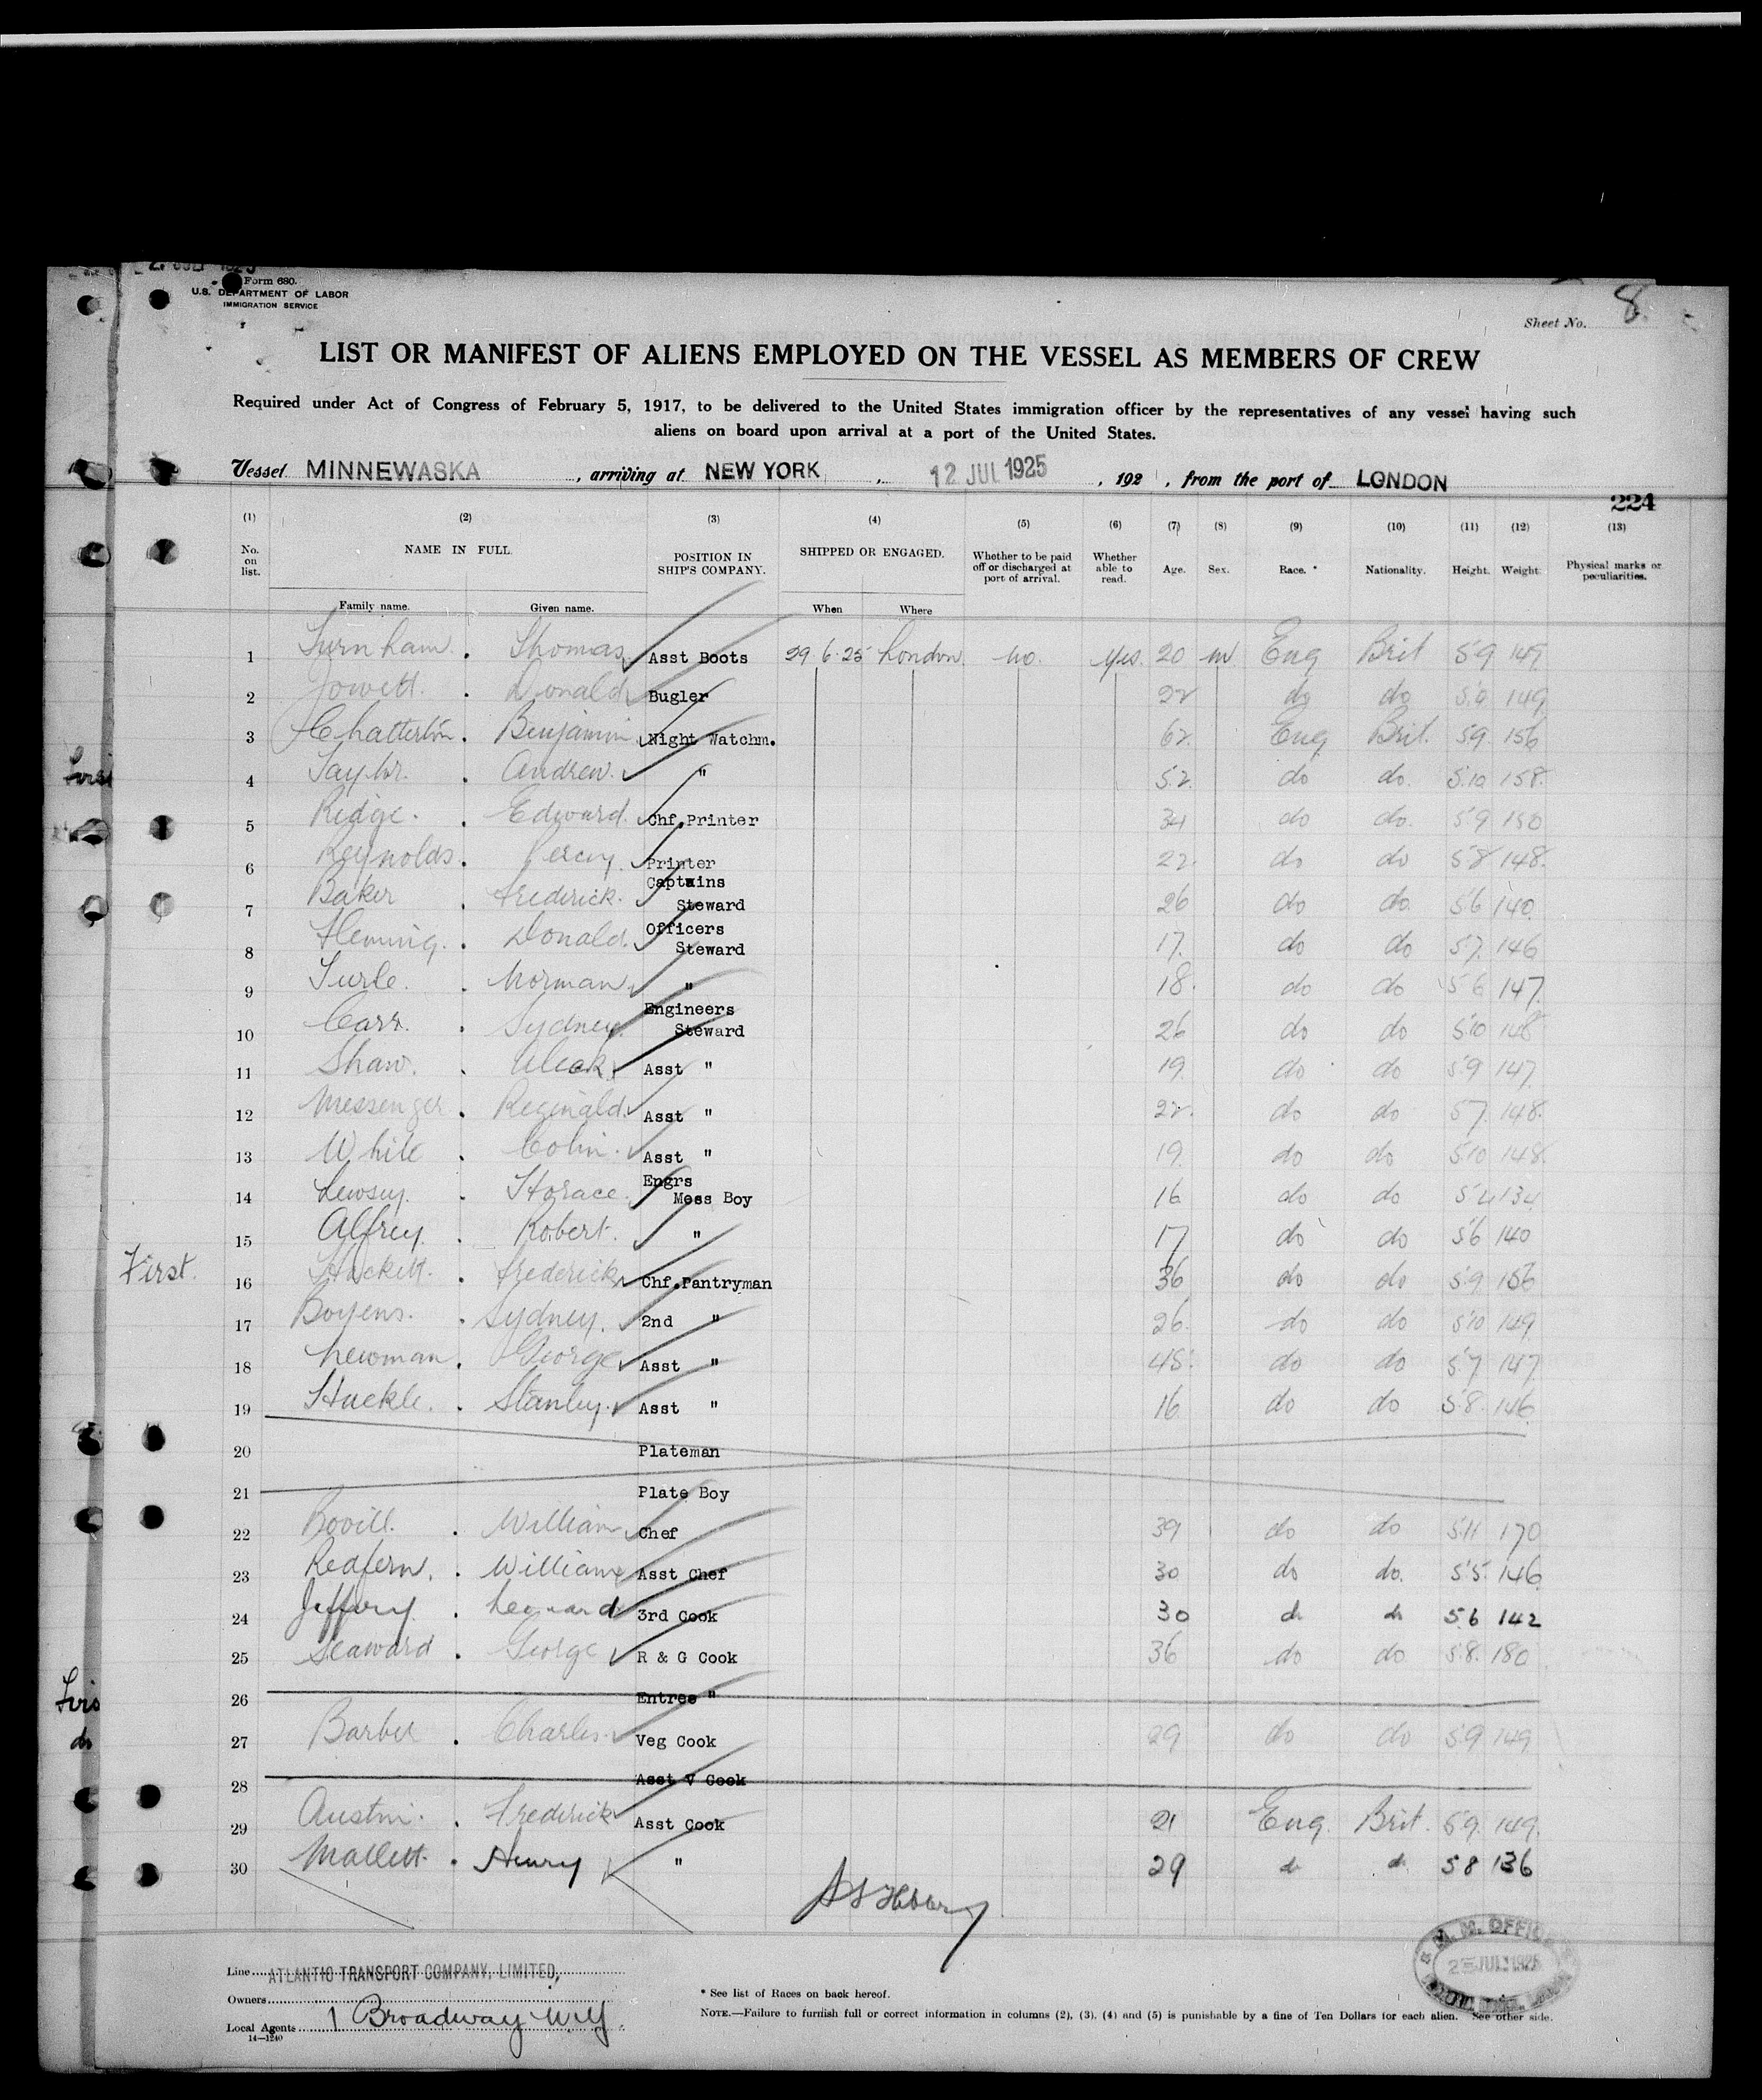 Form 680.
U.S. DEPARTMENT OF LABOR
IMMIGRATION SERVICE
Sheet No. 8
LIST OR MANIFEST OF ALIENS EMPLOYED ON THE VESSEL AS MEMBERS OF CREW
Required under Act of Congress of February 5, 1917, to be delivered to the United States immigration officer by the representatives of any vessel having such
aliens on board upon arrival at a port of the United States.
Vessel MINNEWASKA, arriving at NEW YORK, 12 JUL 1925, 192 , from the port of LONDON
224
(1) (2) (3) (4) (5) (6) (7) (8) (9) (10) (11) (12) (13)
No. on list. NAME IN FULL. POSITION IN SHIP'S COMPANY. SHIPPED OR ENGAGED. Whether to be paid off or discharged at port of arrival. Whether able to read. Age. Sex. Race. * Nationality. Height. Weight. Physical marks or peculiarities.
Family name. Given name. When Where
1 Turnham. Thomas Asst Boots 29 6 25 London no. yes. 20 m Eng Brit 5 9 149
2 Jowett. Donald Bugler 22 do do 5 9 149
3 Chatterton. Benjamin Night Watchm. 62 Eng Brit. 5 9 156
4 Taylor. Andrew. " 52 do do. 5 10 158
5 Ridge. Edward. Chf.Printer 34 do do. 5 9 150
6 Reynolds. Percy. Printer 22 do do 5 8 148
7 Baker Frederick. Captains Steward 26 do do 5 6 140
8 Fleming. Donald. Officers Steward 17 do do 5 7 146
9 Turle. Norman " 18 do do 5 6 147
10 Carr. Sydney. Engineers Steward 26 do do 5 10 148
11 Shaw. Alick Asst " 19 do do 5 9 147
12 Messenger Reginald. Asst " 22 do do 5 7 148
13 White Colin. Asst " 19 do do 5 10 148
14 Lewsey. Horace. Engrs Mess Boy 16 do do 5 4 134
15 Alfrey. Robert. " 17 do do 5 6 140
First.
16 Hackett. Frederick Chf.Pantryman 36 do do 5 9 156
17 Boyens. Sydney. 2nd " 26 do do 5 10 149
18 Newman. George Asst " 45 do do 5 7 147
19 Huckle. Stanley. Asst " 16 do do 5 8 146
20 Plateman
21 Plate Boy
22 Bovill. William Chef 39 do do 5 11 170
23 Redfern. William Asst Chef 30 do do. 5 5 146
24 Jeffery Leonard 3rd Cook 30 do do 5 6 142
25 Seaward George R & G Cook 36 do do 5 8 180
26 Entree "
27 Barber Charles Veg Cook 29 do do 5 9 149
28 Asst V Cook
29 Austin. Frederick Asst Cook 21 Eng. Brit. 5 9 149
30 Mallett. Henry " 29 do do 5 8 136
Line ATLANTIC TRANSPORT COMPANY, LIMITED,
Owners
Local Agents 1 Broadway N.Y.
14—1240
* See list of Races on back hereof.
NOTE.—Failure to furnish full or correct information in columns (2), (3), (4) and (5) is punishable by a fine of Ten Dollars for each alien. See other side.